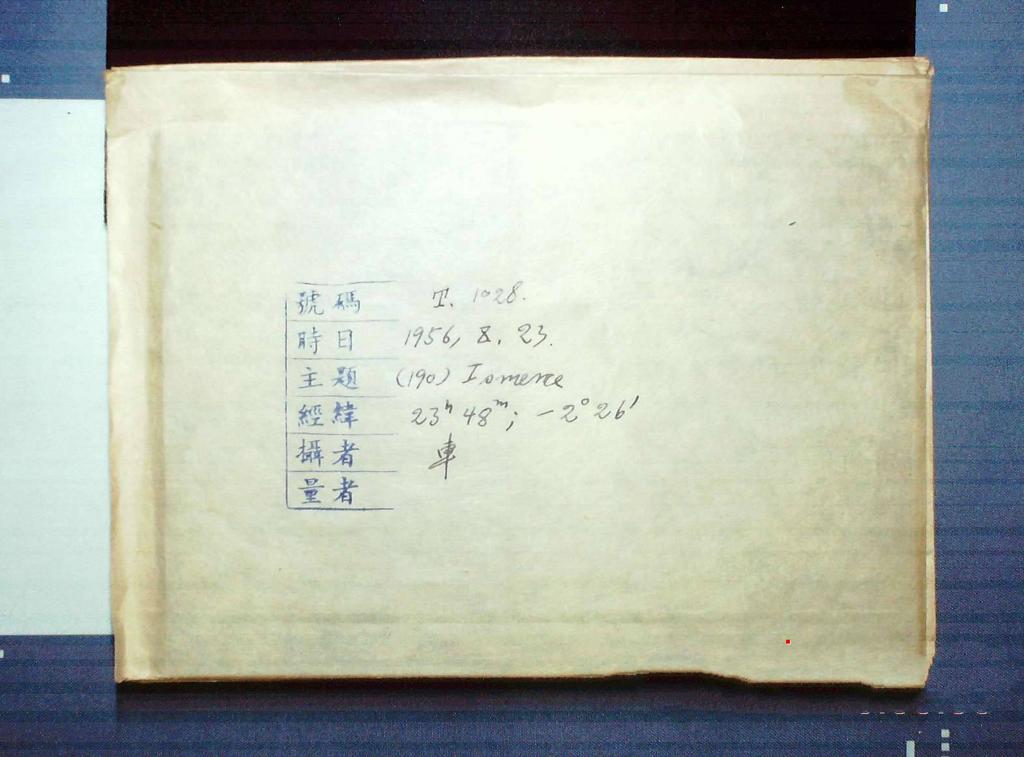 號碼 T. 1028.
時日 1956, 8. 23.
主題 (190) Ismene
經緯 23h 48m; -2° 26'
攝者 車
量者